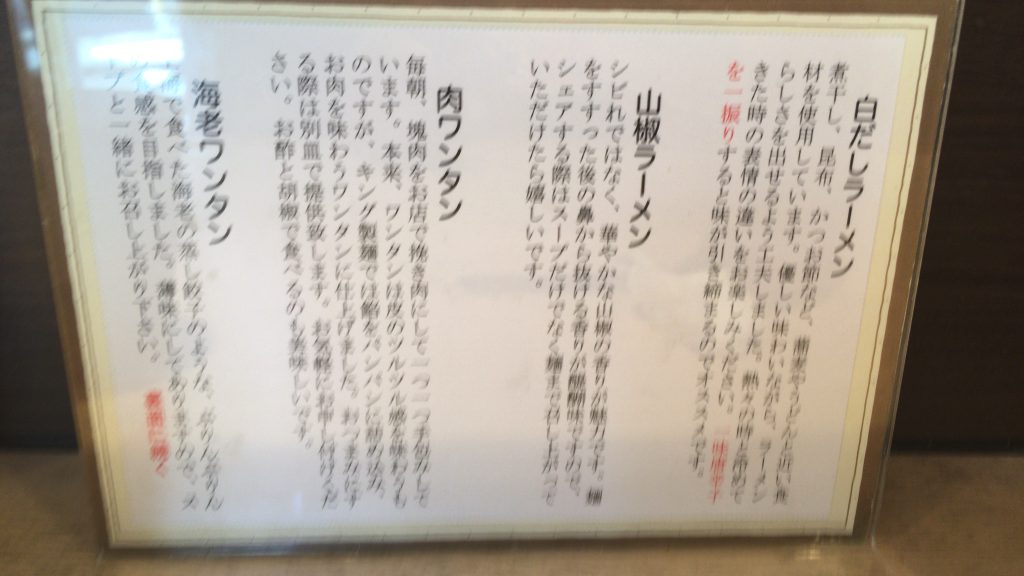 白だしラーメン
煮干し、昆布、かつお節など、蕎麦やうどんと近い食
材を使用しています。優しい味わいながら、ラーメン
らしさを出せるよう工夫しました。熱々の時と冷めて
きた時の表情の違いをお楽しみください。一味唐辛子
を一振りすると味が引き締まるのでオススメです。
山椒ラーメン
シビれではなく、華やかな山椒の香りが魅力です。麺
をすすった後の鼻から抜ける香りが醍醐味ですので、
シェアする際はスープだけでなく麺まで召し上がって
いただけたら嬉しいです。
肉ワンタン
毎朝、塊肉をお店で挽き肉にして一つ一つ手包みして
います。本来、ワンタンは皮のツルツル感を味わうも
のですが、キング製麺では餡をパンパンに詰め込み、
お肉を味わうワンタンに仕上げました。おつまみにす
る際は別皿で提供致します。お気軽にお申し付けくだ
さい。お酢と胡椒で食べるのも美味しいです。
海老ワンタン
で食べた海老の蒸し餃子のような、ぷりんぷりん
食感を目指しました。薄味にしてありますので、ス
ープと一緒にお召し上がり下さい。